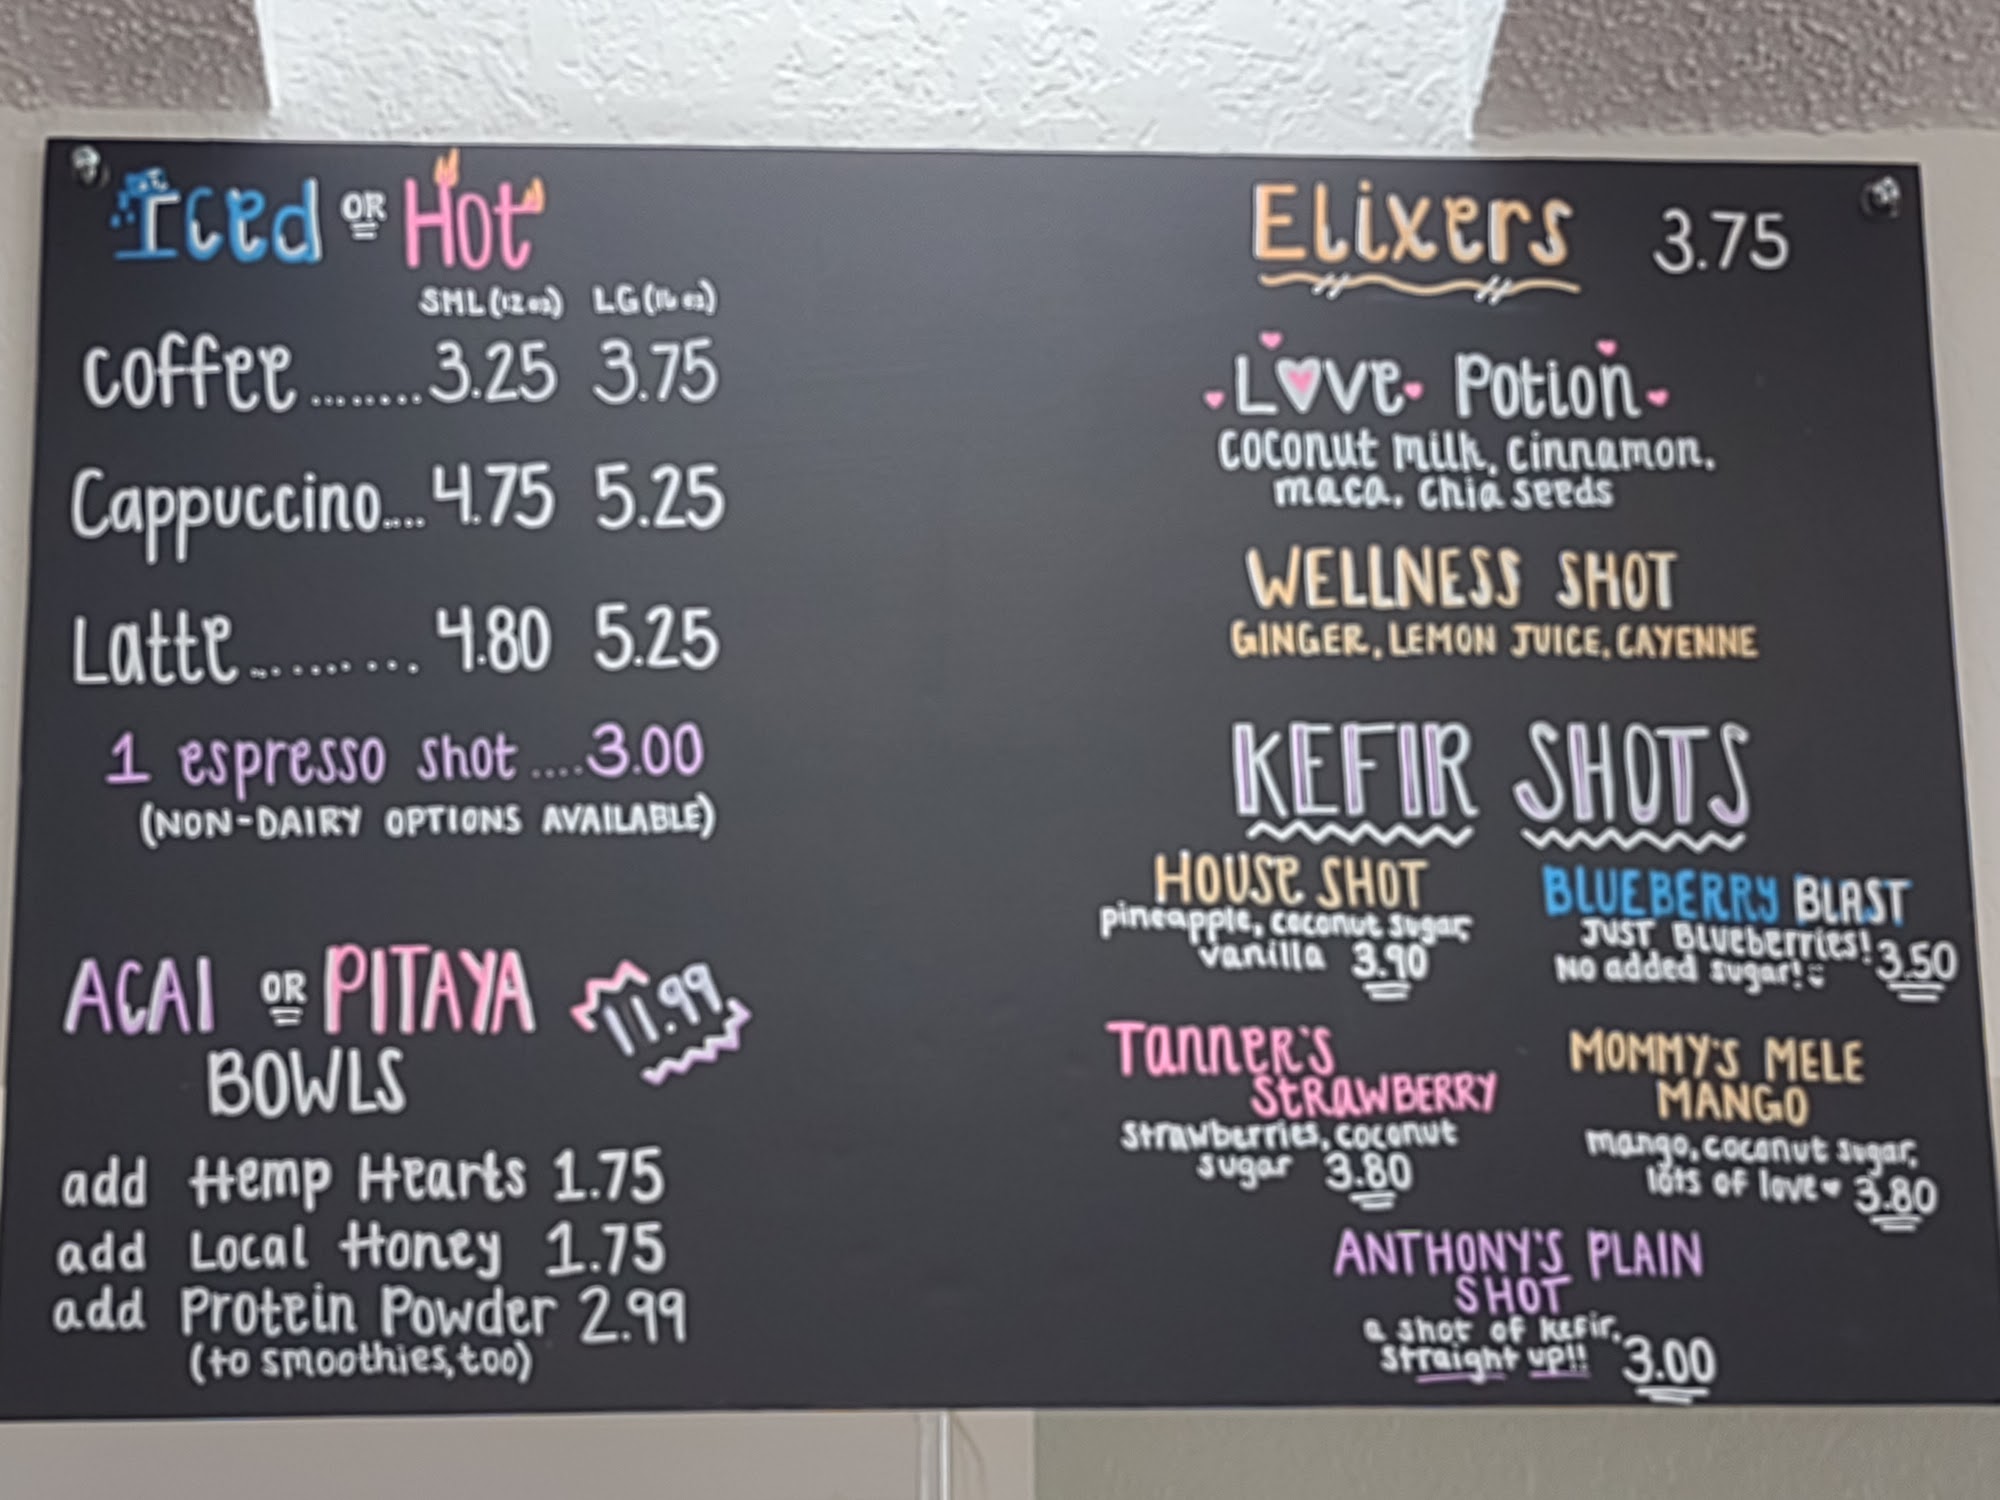 Iced OR Hot
SML (12 oz) LG (16 oz)
coffee........3.25 3.75
Cappuccino....4.75 5.25
Latte..........4.80 5.25
1 espresso shot....3.00
(NON-DAIRY OPTIONS AVAILABLE)
ACAI OR PITAYA 11.99
BOWLS
add Hemp Hearts 1.75
add Local Honey 1.75
add Protein Powder 2.99
(to smoothies, too)
Elixers 3.75
Love Potion
coconut milk, cinnamon,
maca, chia seeds
WELLNESS SHOT
GINGER, LEMON JUICE, CAYENNE
KEFIR SHOTS
HOUSE SHOT
pineapple, coconut sugar,
vanilla 3.90
BLUEBERRY BLAST
JUST Blueberries!
No added sugar! 3.50
Tanner's
Strawberry
strawberries, coconut
sugar 3.80
MOMMY'S MELE
MANGO
mango, coconut sugar,
lots of love 3.80
ANTHONY'S PLAIN
SHOT
a shot of kefir,
straight up!! 3.00